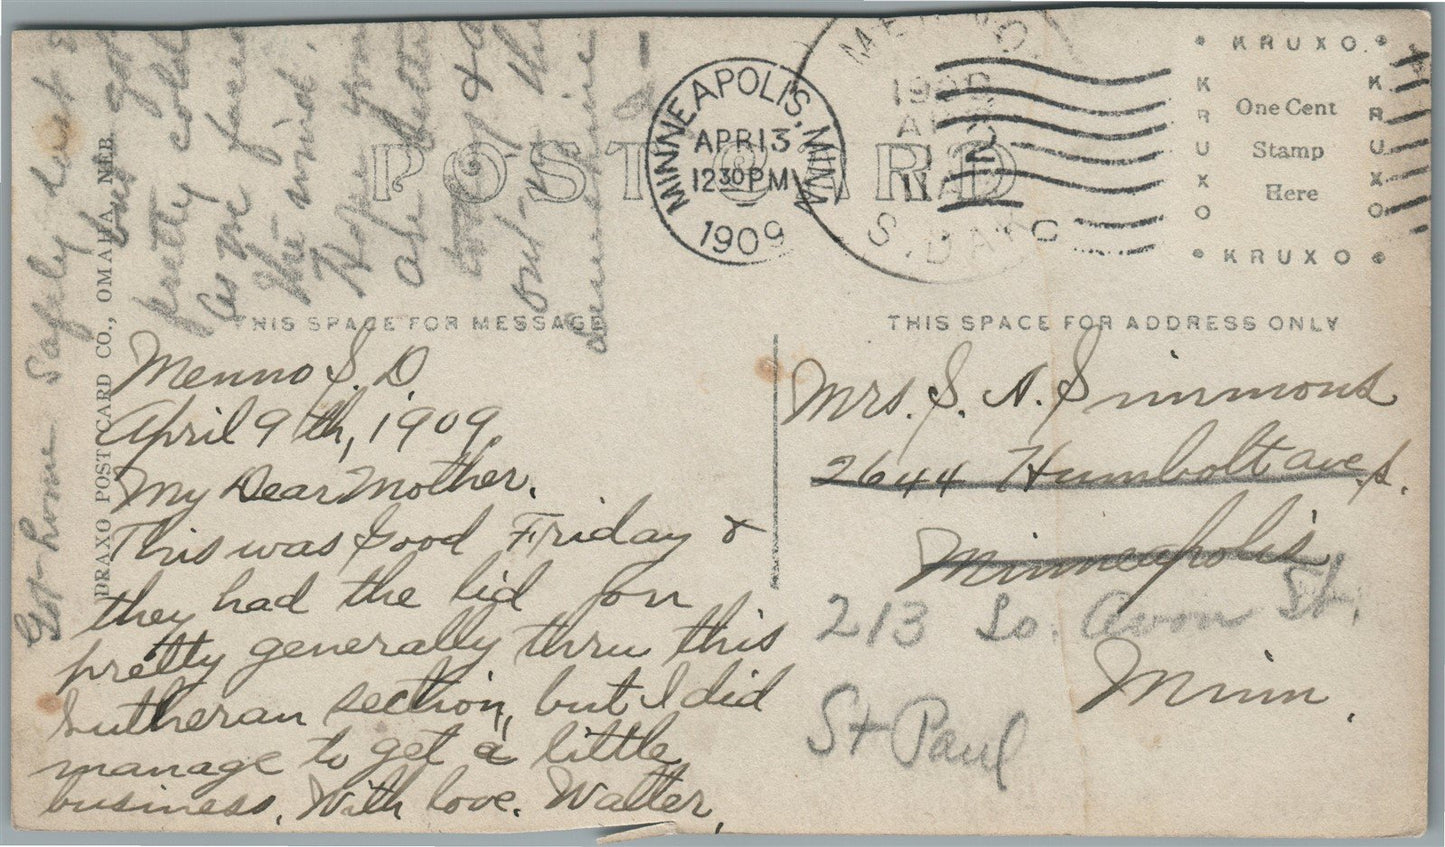 POST CARD
MINNEAPOLIS, MINN.
APR 13
12 30 PM
1909
MENNO
1909
S. DAK
KRUXO
KRUXO
One Cent
Stamp
Here
KRUXO
KRUXO
THIS SPACE FOR MESSAGE
THIS SPACE FOR ADDRESS ONLY
DRAXO POST CARD CO., OMAHA, NEB.
Menno S. D.
April 9th, 1909.
My Dear Mother.
This was Good Friday &
they had the lid on
pretty generally thru this
Lutheran section, but I did
manage to get a little
business. With love. Walter.
Got home safely last
but got
pretty cold
as we faced
the wind.
Hope you
are better
today &
out in the
sunshine
Mrs. S. A. Simmons
2644 Humbolt ave. S.
Minneapolis
213 So. Avon St.
Minn.
St Paul